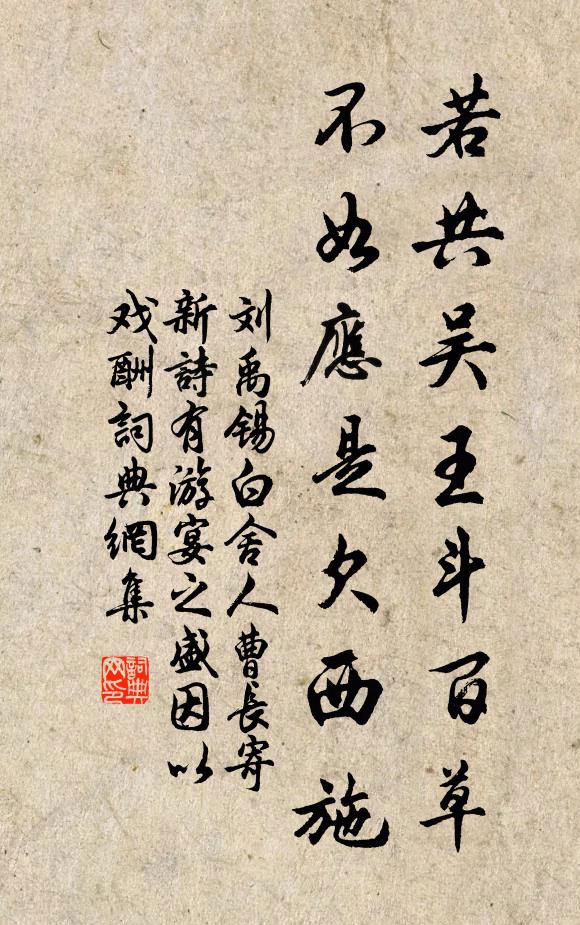 若共吴王斗百草
不如應是欠西施
刘禹锡白舍人曹長寄
新詩有游宴之盛因以
戏酬詞典網集
詞典网印